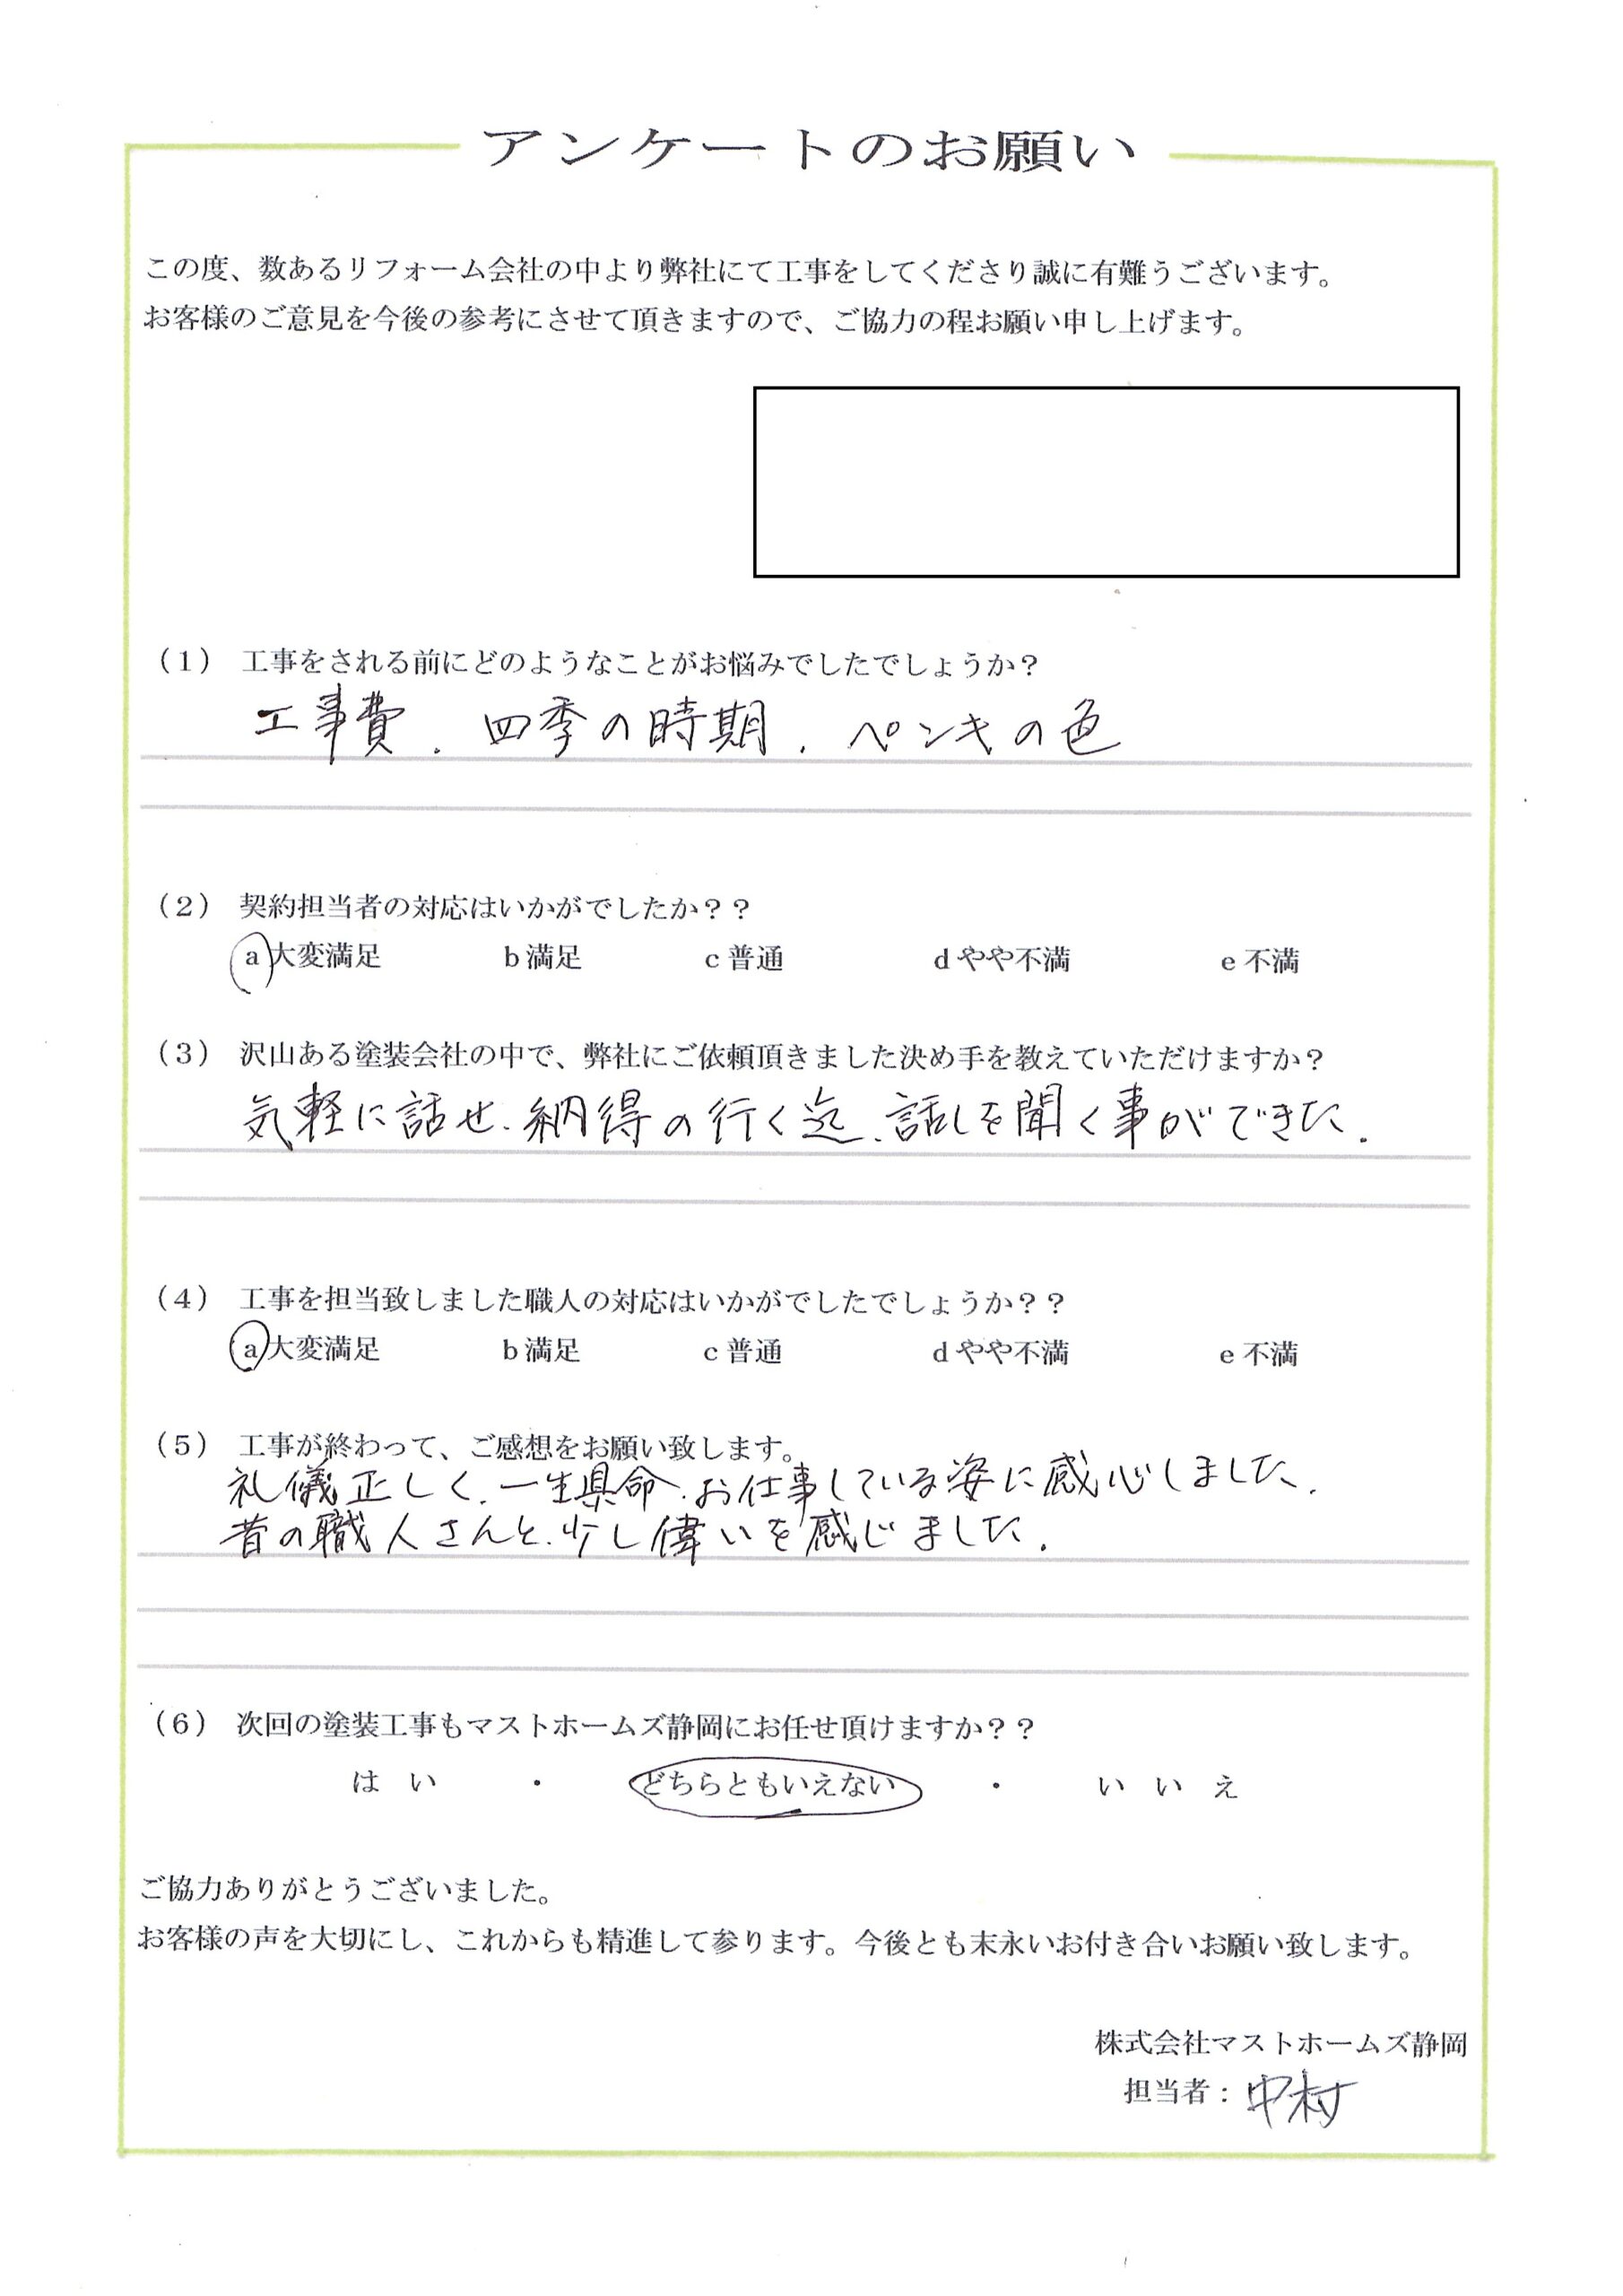 アンケートのお願い
この度、数あるリフォーム会社の中より弊社にて工事をしてくださり誠に有難うございます。
お客様のご意見を今後の参考にさせて頂きますので、ご協力の程お願い申し上げます。
（1） 工事をされる前にどのようなことがお悩みでしたでしょうか？
工事費、四季の時期、ペンキの色
（2） 契約担当者の対応はいかがでしたか？？
a 大変満足 b 満足 c 普通 d やや不満 e 不満
（3） 沢山ある塗装会社の中で、弊社にご依頼頂きました決め手を教えていただけますか？
気軽に話せ、納得の行く迄、話しを聞く事ができた。
（4） 工事を担当致しました職人の対応はいかがでしたでしょうか？？
a 大変満足 b 満足 c 普通 d やや不満 e 不満
（5） 工事が終わって、ご感想をお願い致します。
礼儀正しく、一生県命、お仕事している姿に感心しました。
昔の職人さんと、少し偉いを感じました。
（6） 次回の塗装工事もマストホームズ静岡にお任せ頂けますか？？
はい ・ どちらともいえない ・ いいえ
ご協力ありがとうございました。
お客様の声を大切にし、これからも精進して参ります。今後とも末永いお付き合いお願い致します。
株式会社マストホームズ静岡
担当者：中村